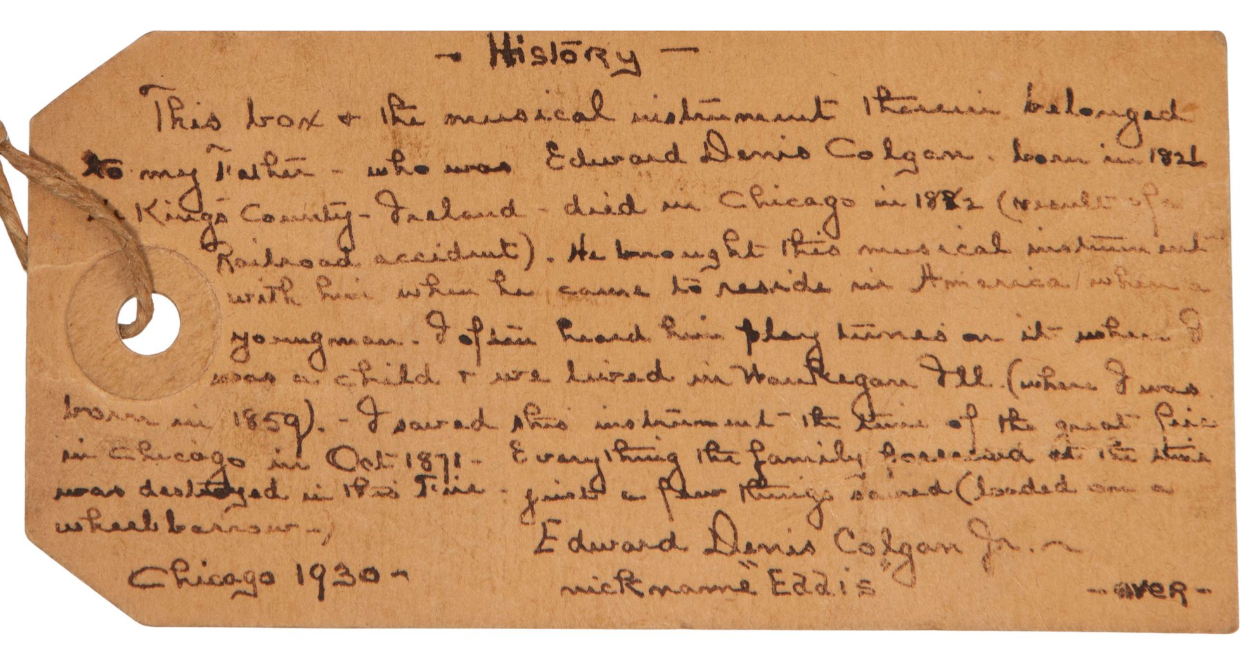 - History -
This box & the musical instrument therein belonged
to my Father - who was Edward Denis Colgan - born in 1826
in King's County - Ireland - died in Chicago in 1882 (result of a
Railroad accident). He brought this musical instrument
with him when he came to reside in America when a
young man. I often heard him play tunes on it when I
was a child & we lived in Waukegan Ill. (where I was
born in 1859). - I saved this instrument the time of the great fire
in Chicago in Oct 1871 - Everything the family possessed at the time
was destroyed in this Fire - just a few things saved (loaded on a
wheelbarrow -)
Edward Denis Colgan Jr. -
Chicago 1930 -
nickname "Eddis"
- over -